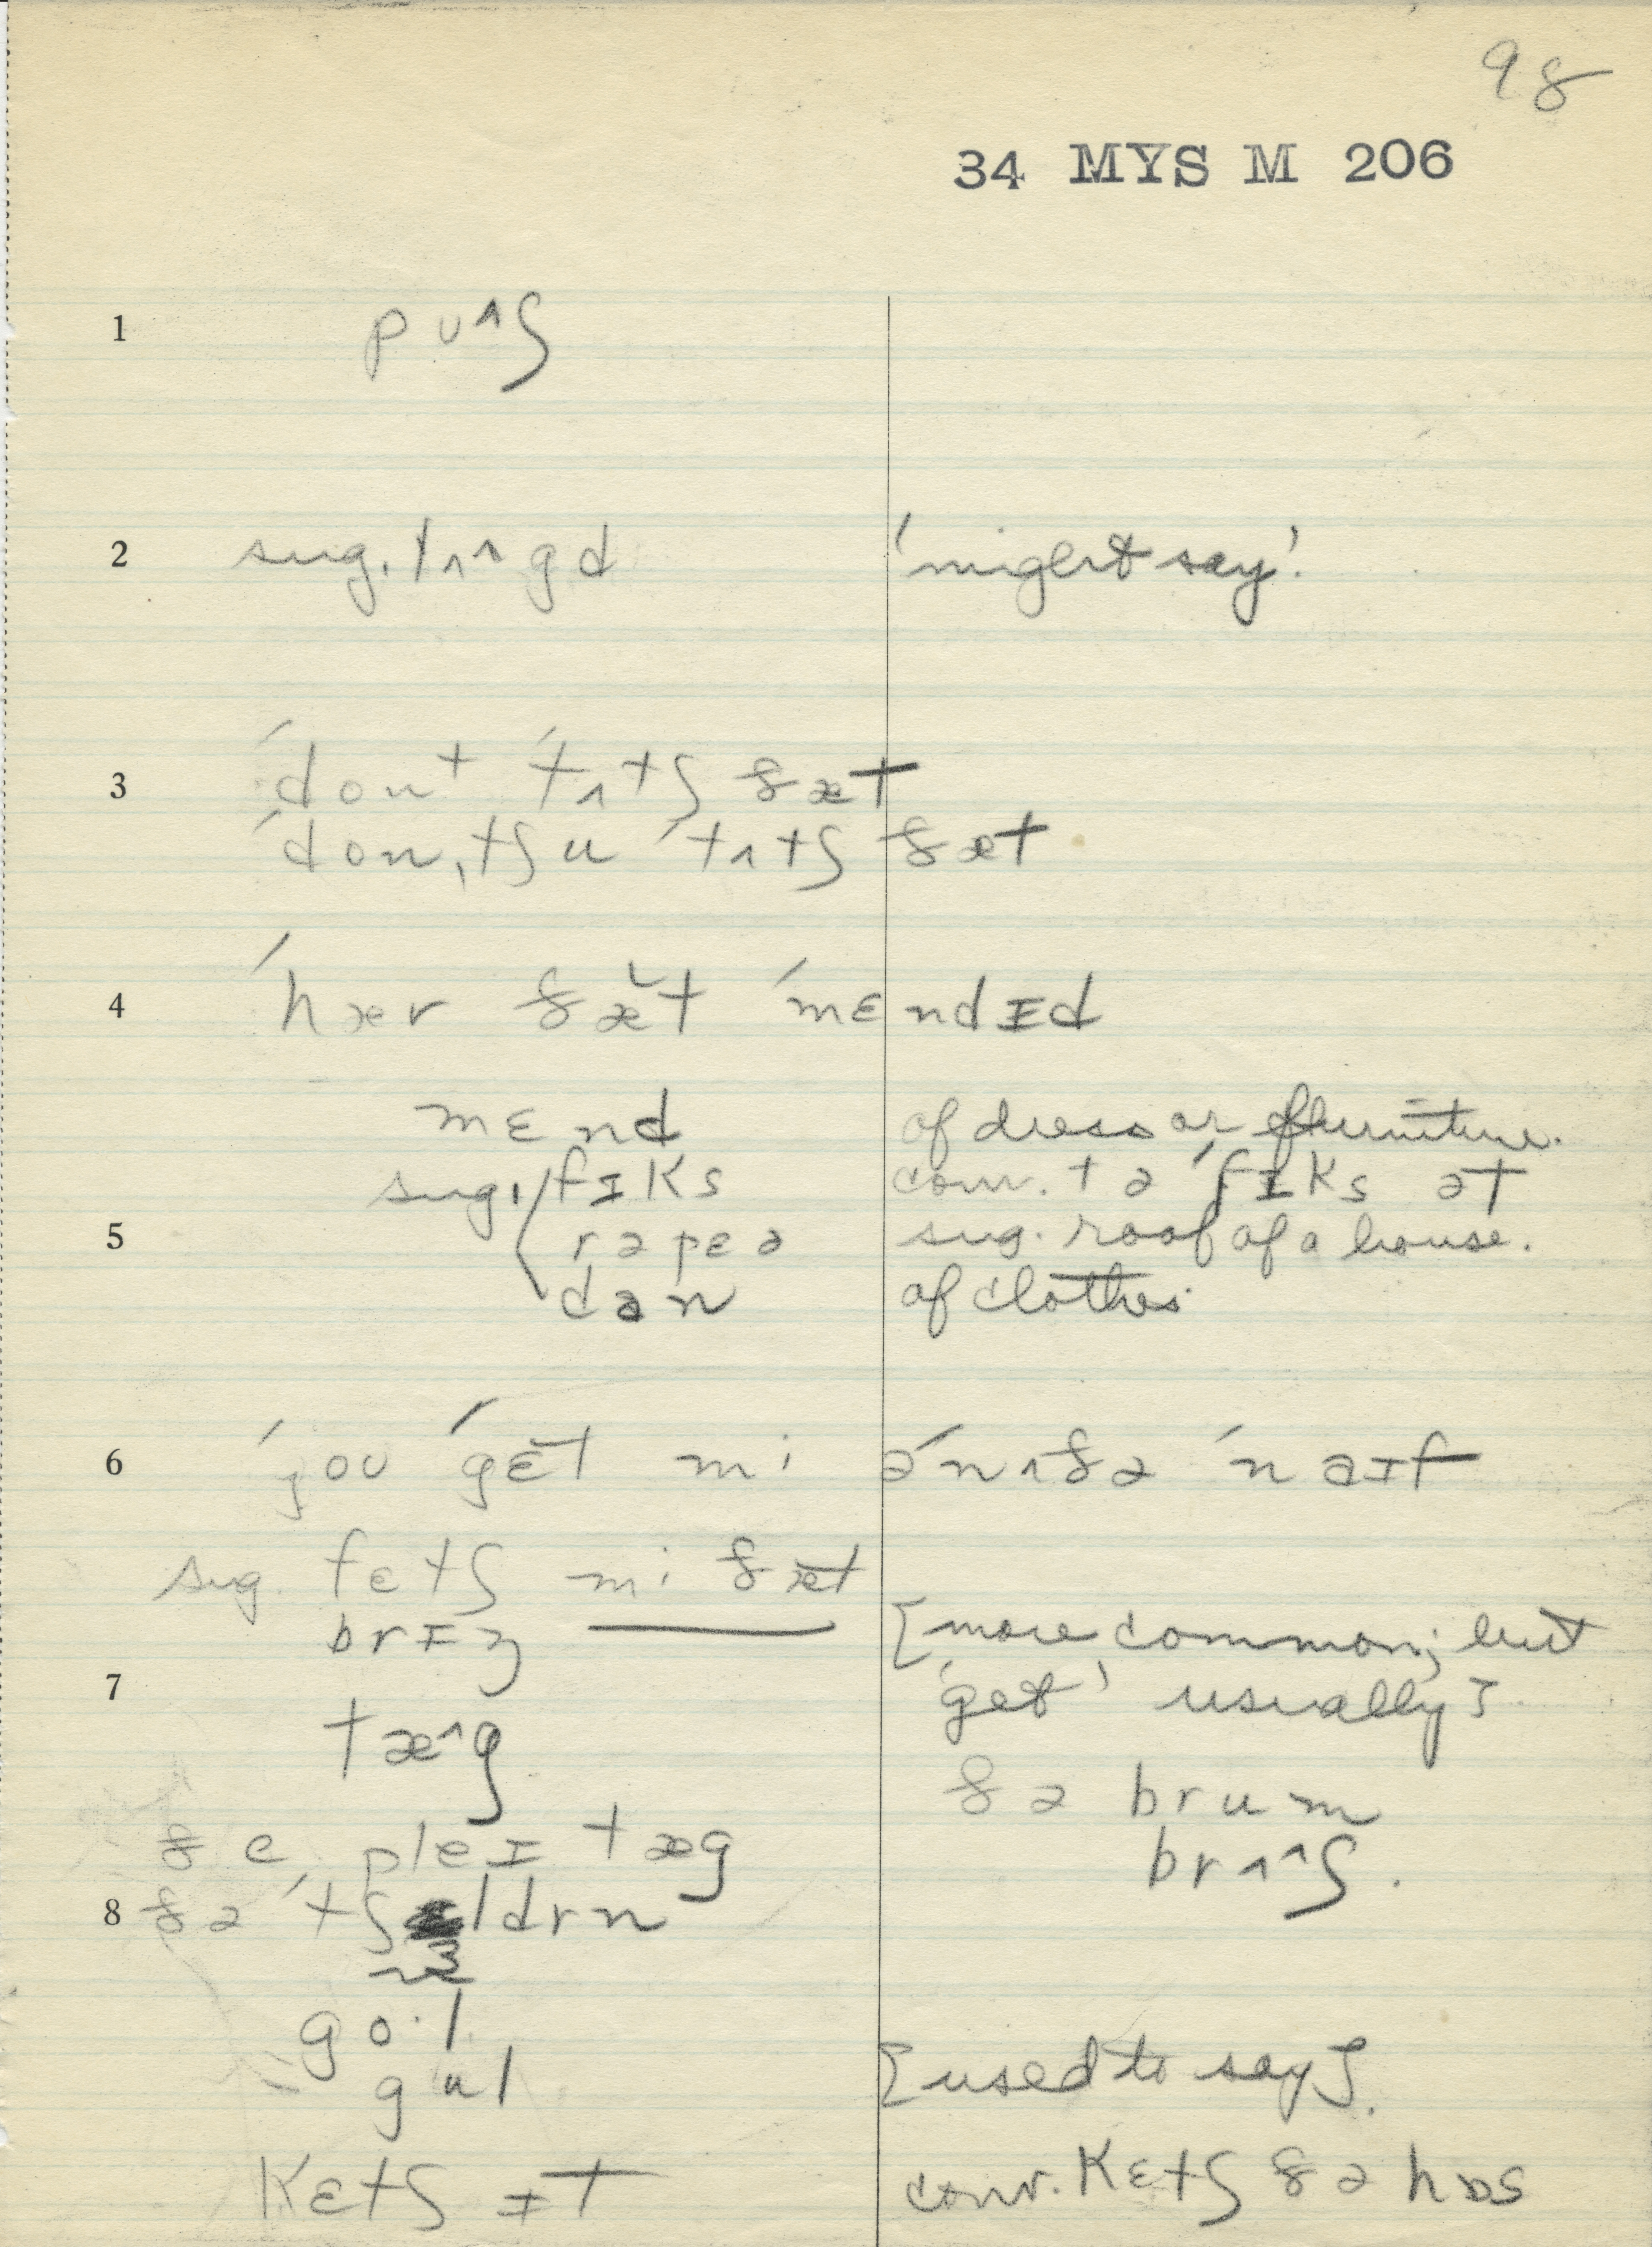 98
34 MYS M 206
1 pᴜ^ʃ
2 sug. tʌ^gd 'might say'.
3 ´dont ´tʌtʃ ðæt
´don,tʃu ´tʌtʃ ðæt
4 ´hær ðæ̆t ´mɛndɪd
mɛnd of dress or furniture.
sug. fɪks conv. tə ´fɪks ət
5 rəpɛə sug. roof of a house.
dan of clothes.
6 ´joʊ ´gɛ̆t mi ə´nʌðə ´naɪf
sug. fɛtʃ mi ðæ̆t
brɪŋ [more common; but
7 'get' usually]
tæ^g
ðə brum
ðe pleɪ tæg
brʌ^ʃ.
8 ðə ´tʃɪldrn
go·l
gul [used to say].
kɛtʃ ɪt conv. kɛtʃ ðə hɒs